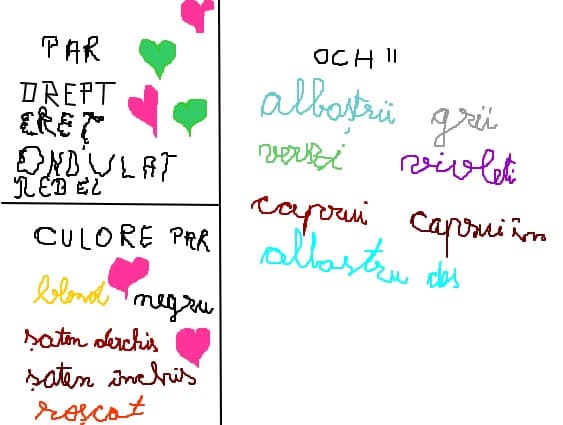 PAR
DREPT
CREȚ
ONDULAT
REBEL
CULORE PAR
blond negru
șaten deschis
șaten inchis
roșcat
OCHII
albaștrii grii
verzi violeti
caprui caprui în
albastru des